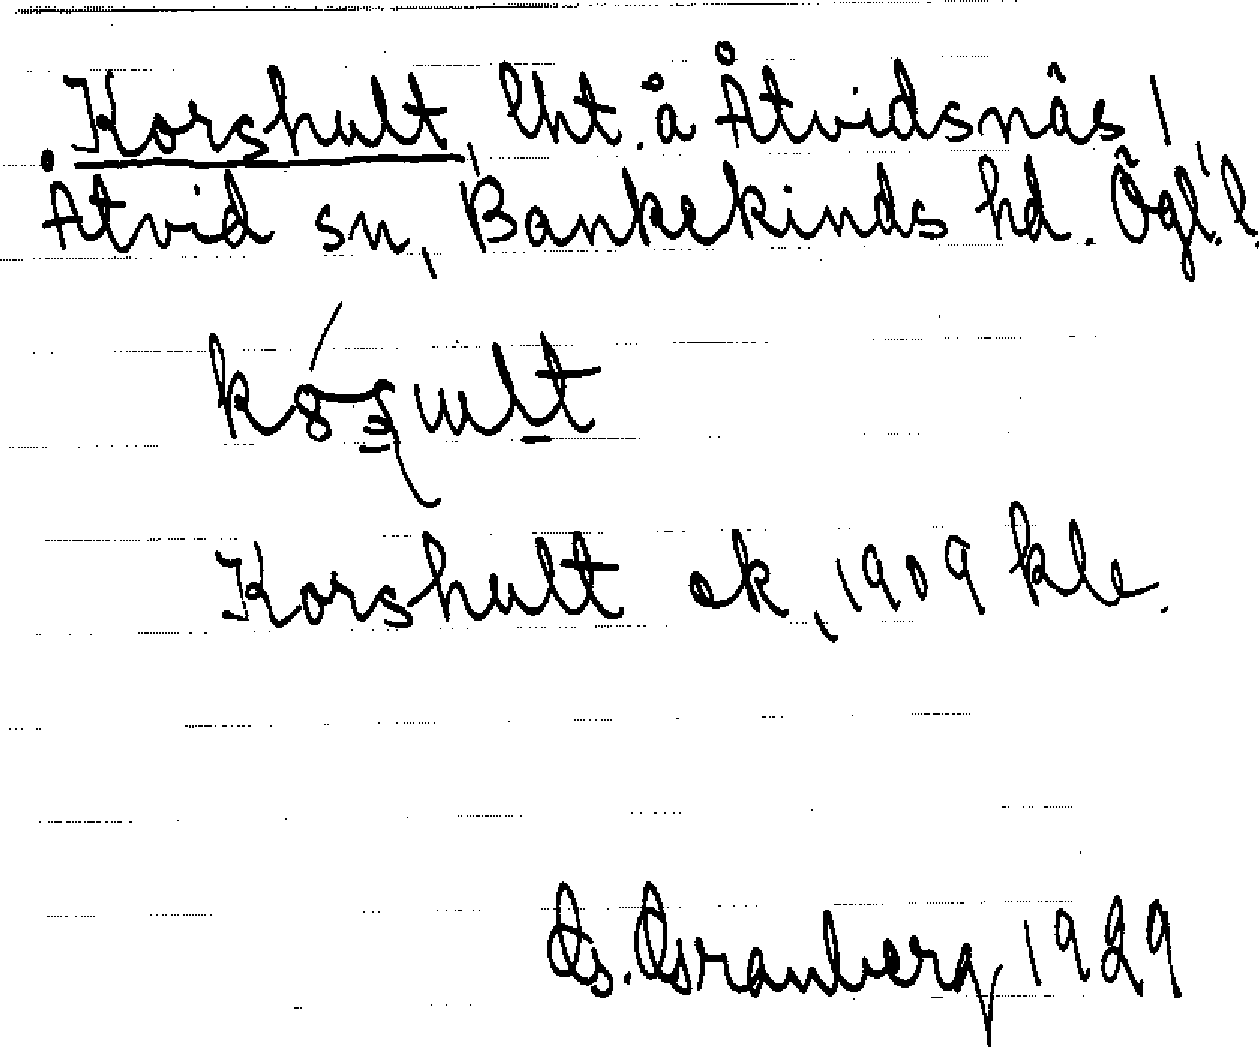 Korshult, lht. å Åtvidsnäs,
Åtvid sn, Bankekinds hd. Ögl. l.
Korshult ek, 1909 kle.
G. Granberg 1929